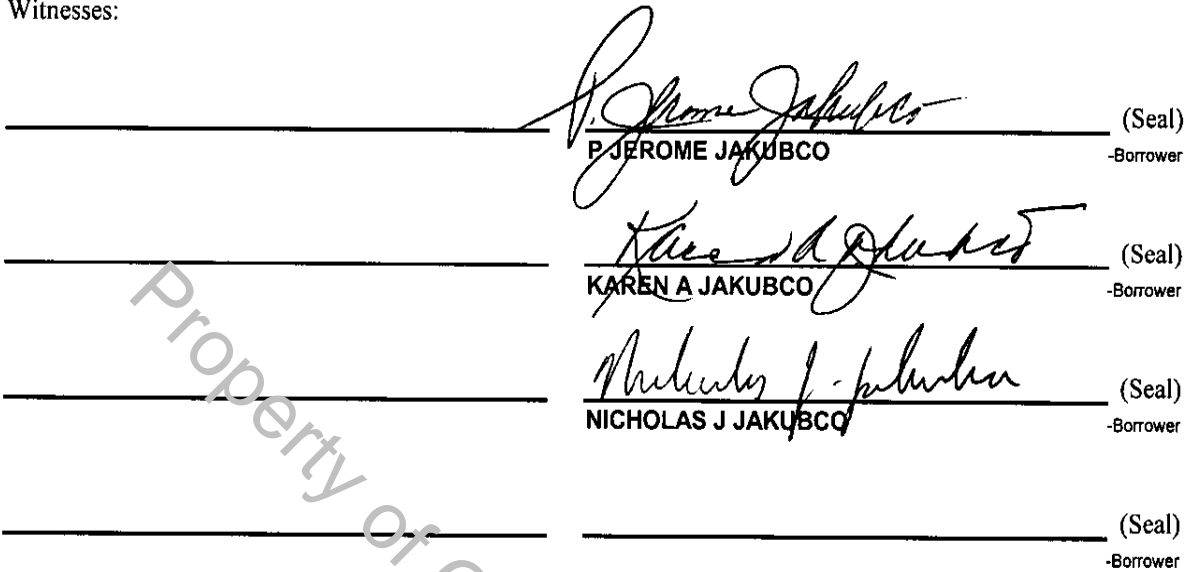 Witnesses:
P. Jerome Jakubco (Seal)
P JEROME JAKUBCO -Borrower
Karen A Jakubco (Seal)
KAREN A JAKUBCO -Borrower
Nicholas J. Jakubco (Seal)
NICHOLAS J JAKUBCO -Borrower
(Seal)
-Borrower
Property of C